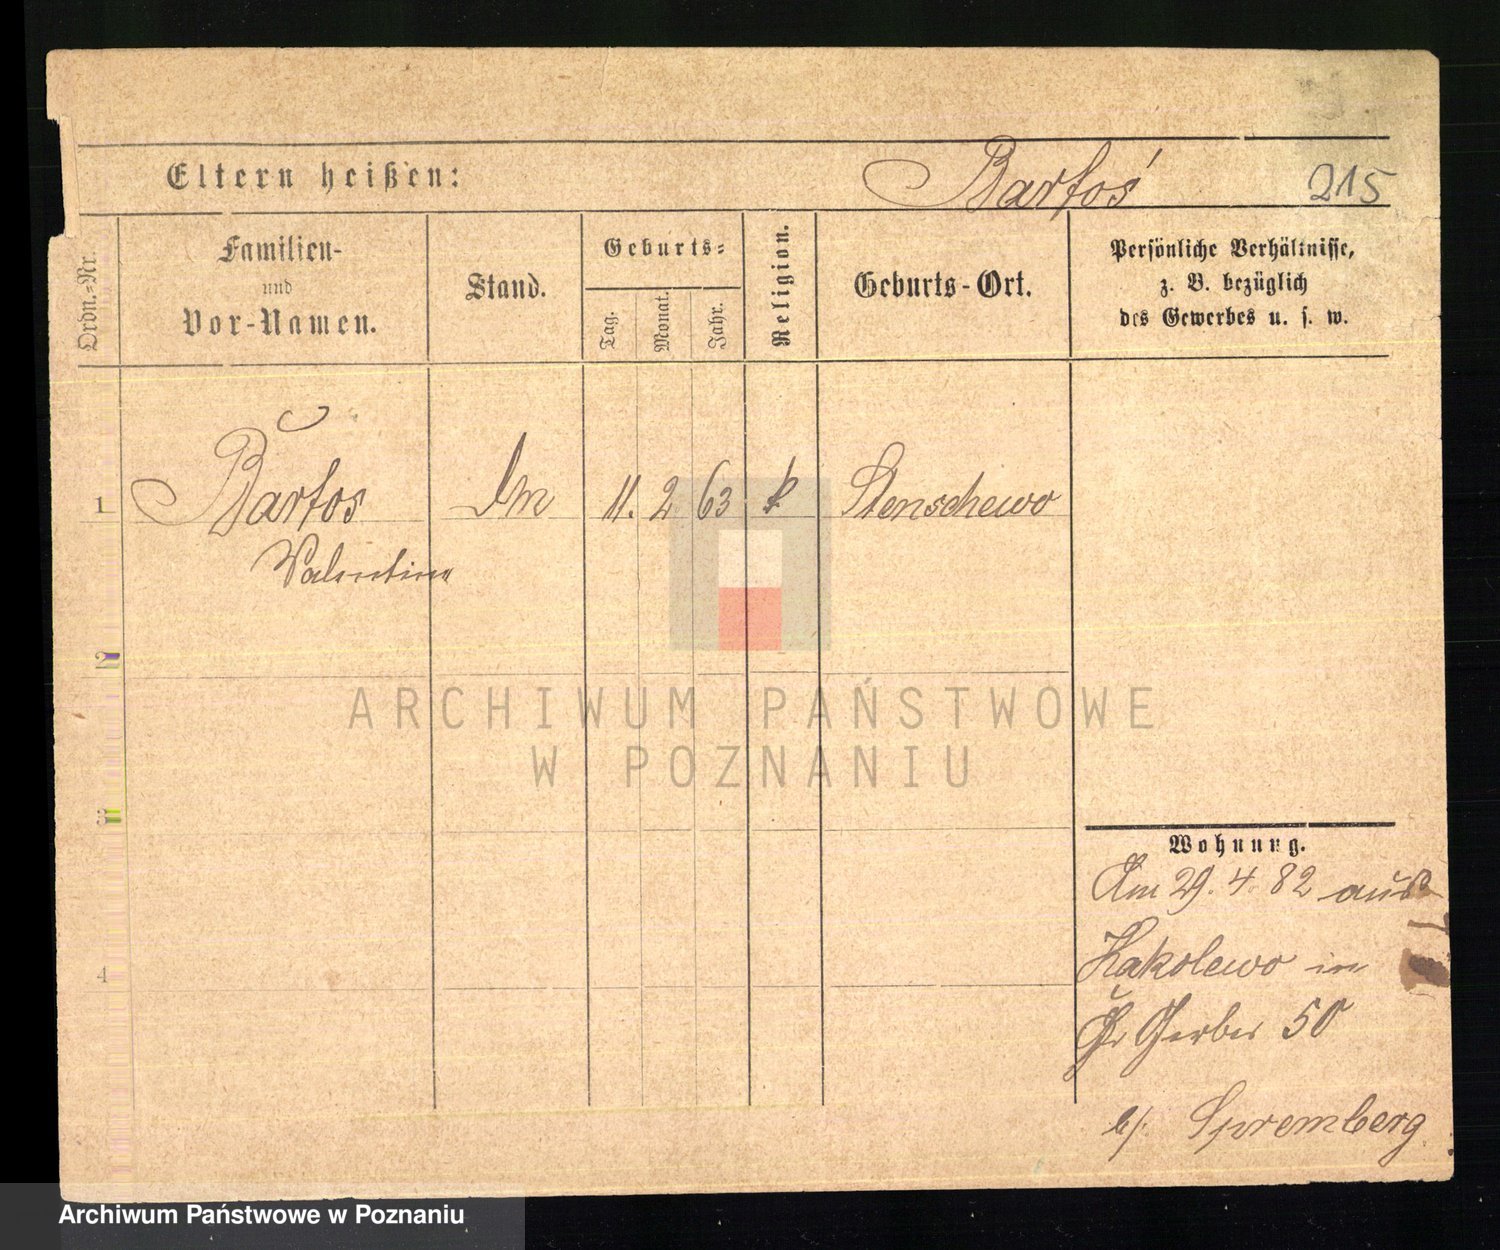 Eltern heißen: Bartoś 215
Ordn.-Nr.
Familien-
und
Vor-Namen.
Stand.
Geburts-
Tag.
Monat.
Jahr.
Religion.
Geburts-Ort.
Persönliche Verhältnisse,
z. B. bezüglich
des Gewerbes u. s. w.
1 Bartos 11. 2 63 k Stenschewo
Valentine
2
3
4
Wohnung.
Am 29. 4. 82 aus
Kąkolewo in
Gr Gerber 50
b/. Spremberg
ARCHIWUM PAŃSTWOWE
W POZNANIU
Archiwum Państwowe w Poznaniu